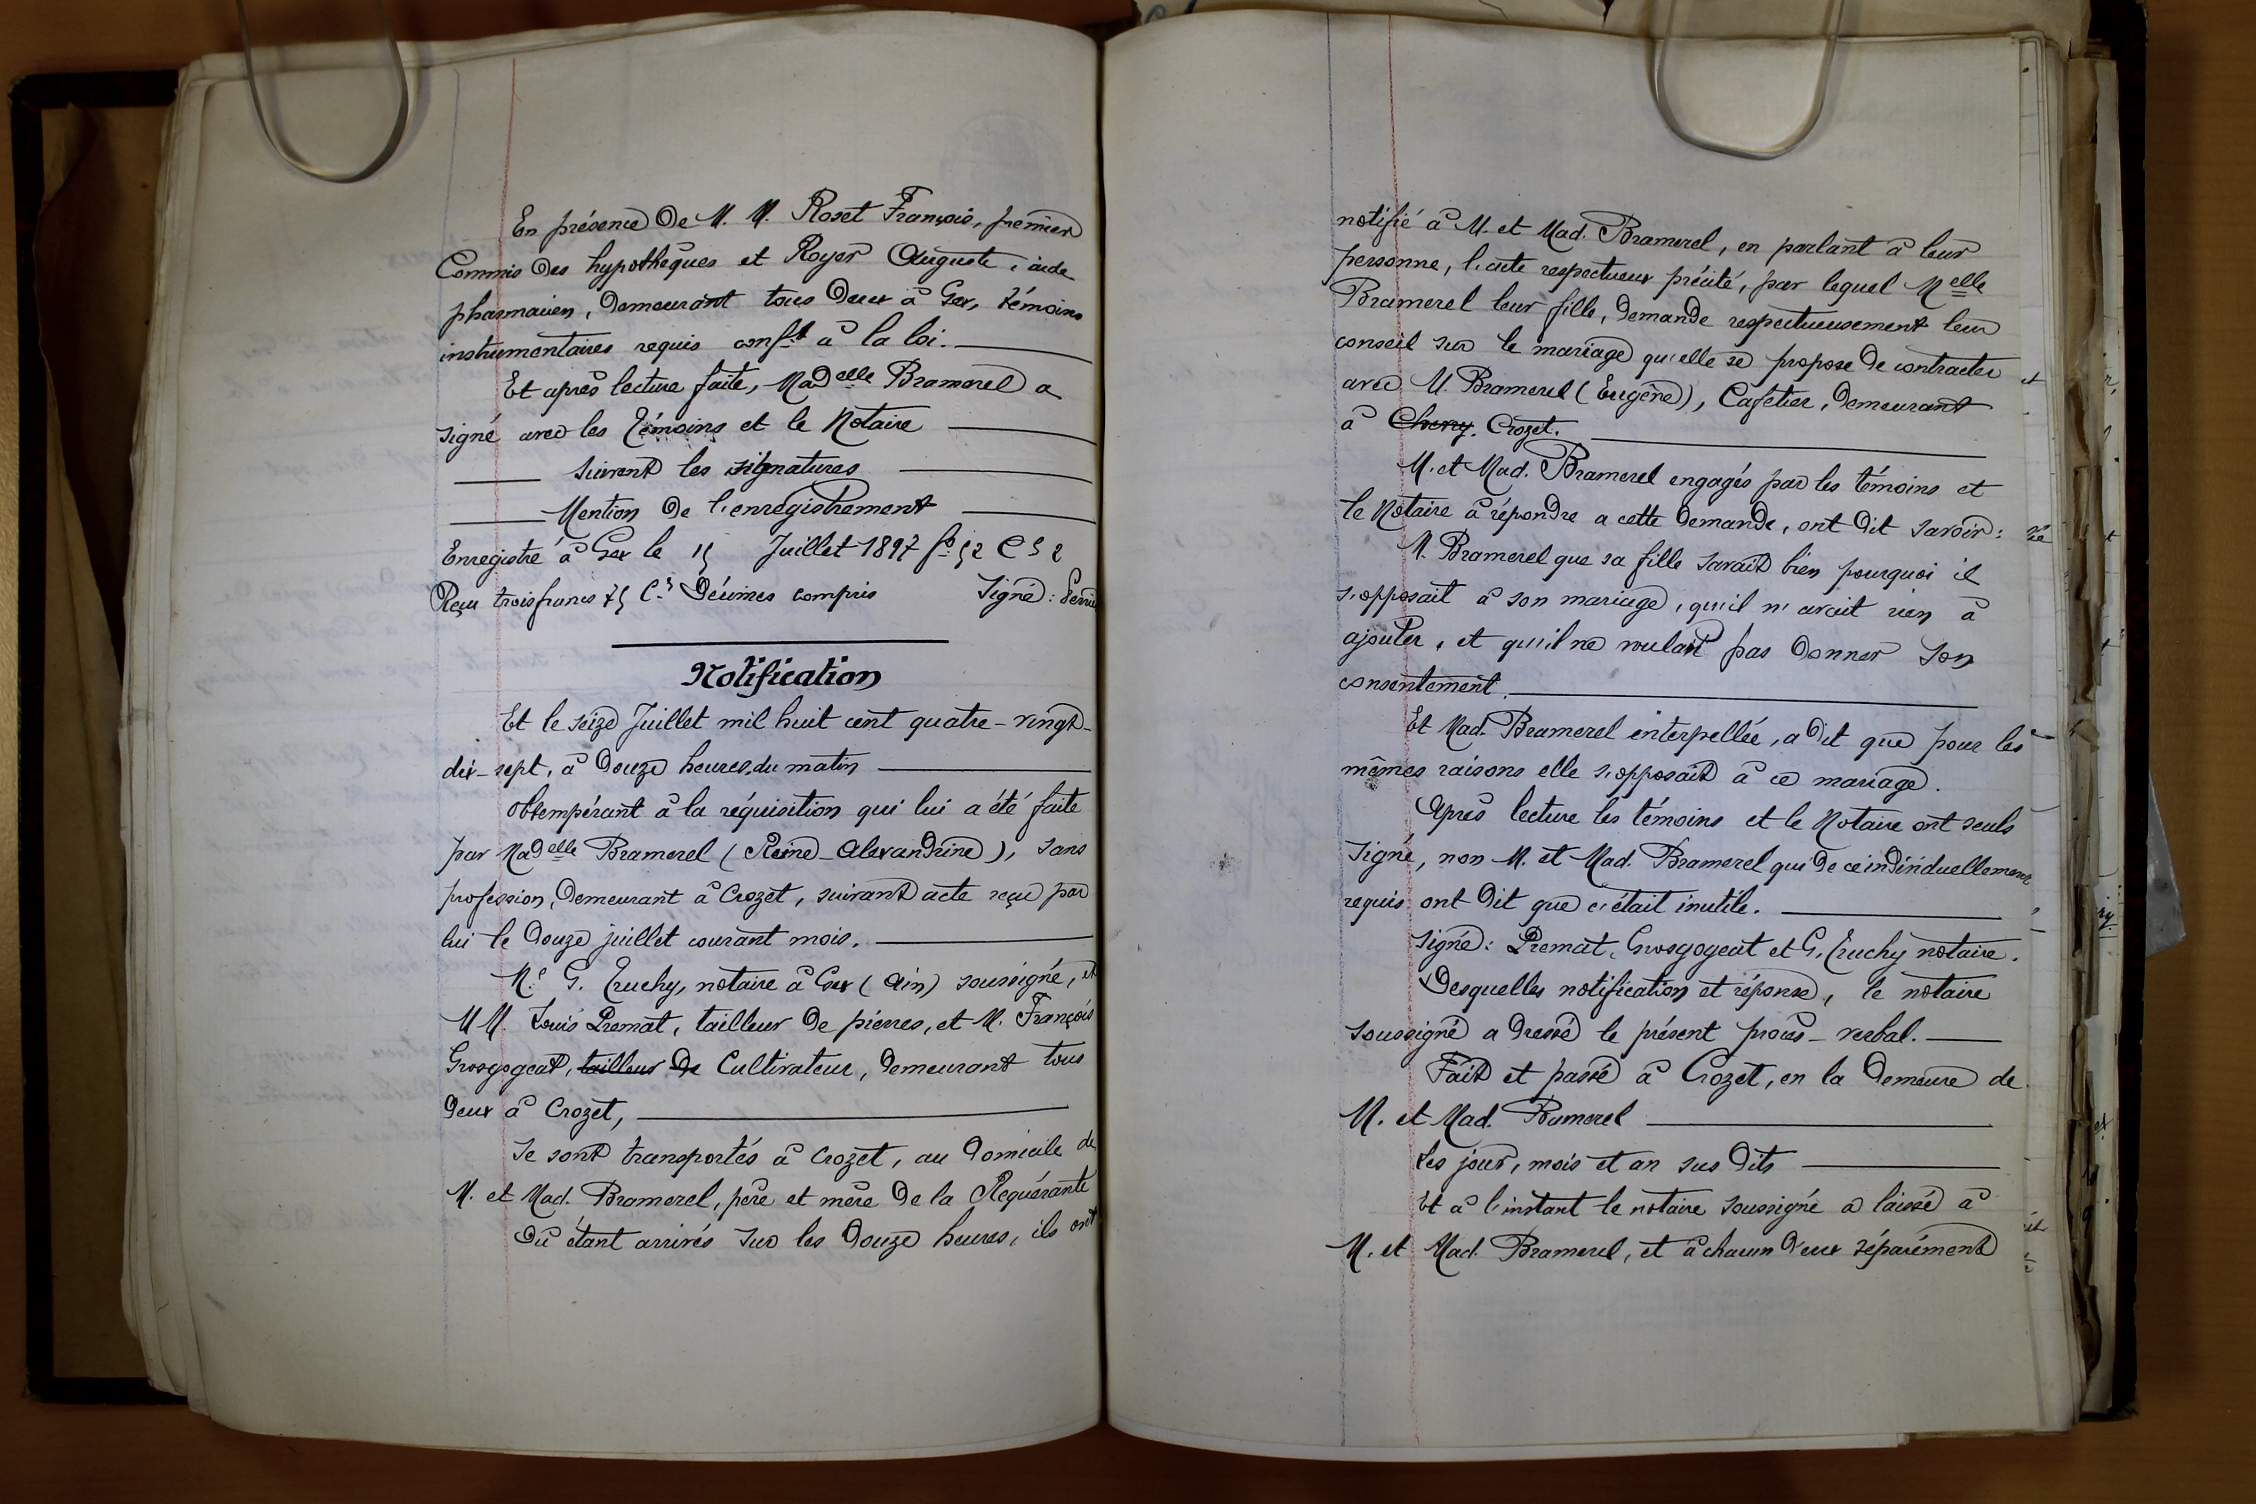 En présence de M. M. Roset François, premier
Commis des hypothèques et Royer Auguste, aide
pharmacien, demeurant tous deux à Gex, témoins
instrumentaires requis conf.t à la loi.
Et après lecture faite, Madelle Bramerel a
signé avec les témoins et le Notaire
suivent les signatures
Mention de l'enregistrement
Enregistré à Gex le 15 Juillet 1897 fo 52 Cs 2
Reçu trois francs 75 Cs Décimes compris Signé:
Notification
Et le seize Juillet mil huit cent quatre-vingt-
dix-sept, à douze heures du matin
Obtempérant à la réquisition qui lui a été faite
par Madelle Bramerel (Reine-Alexandrine), sans
profession, demeurant à Crozet, suivant acte reçu par
lui le douze juillet courant mois.
Me G. Cruchy, notaire à Gex (Ain) soussigné, et
MM. Louis Premat, tailleur de pierres, et M. François
Grosgogeat, tailleur de Cultivateur, demeurant tous
deux à Crozet,
Se sont transportés à Crozet, au domicile de
M. et Mad. Bramerel, père et mère de la Requérante
Où étant arrivés sur les douze heures, ils ont
notifié à M. et Mad. Bramerel, en parlant à leur
personne, l'acte respectueux précité, par lequel Melle
Bramerel leur fille, demande respectueusement leur
conseil sur le mariage qu'elle se propose de contracter
avec M. Bramerel (Eugène), Cafetier, demeurant
à Chevry. Crozet.
M. et Mad. Bramerel engagés par les témoins et
le Notaire à répondre a cette demande, ont dit savoir:
M. Bramerel que sa fille savait bien pourquoi il
s'opposait à son mariage, qu'il n'avait rien à
ajouter, et qu'il ne voulait pas donner son
consentement.
Et Mad. Bramerel interpellée, a dit que pour les
mêmes raisons elle s'opposait à ce mariage.
Après lecture les témoins et le Notaire ont seuls
signé, non M. et Mad. Bramerel qui de ce individuellement
requis ont dit que c'était inutile.
Signé: Premat, Grosgogeat et G. Cruchy notaire.
Desquelles notification et réponse, le notaire
soussigné a dressé le présent procès-verbal.
Fait et passé à Crozet, en la demeure de
M. et Mad. Bramerel
Les jour, mois et an sus dits
Et à l'instant le notaire soussigné a laissé à
M. et Mad. Bramerel, et à chacun d'eux séparément